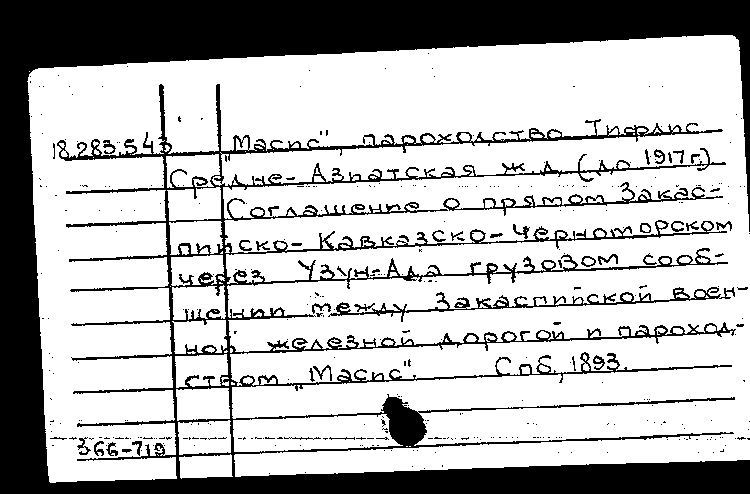 18.283.543 "Масис", пароходство Тифлис
Средне-Азиатская ж.д. (до 1917 г.)
Соглашение о прямом Закас-
пийско-Кавказско-Черноморском
через Узун-Ада грузовом сооб-
щении между Закаспийской воен-
ной железной дорогой и пароход-
ством „Масис". Спб, 1893.
366-719